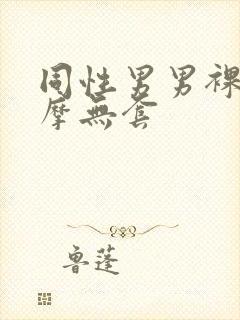 同性男男裸
摩無套
魯蓬